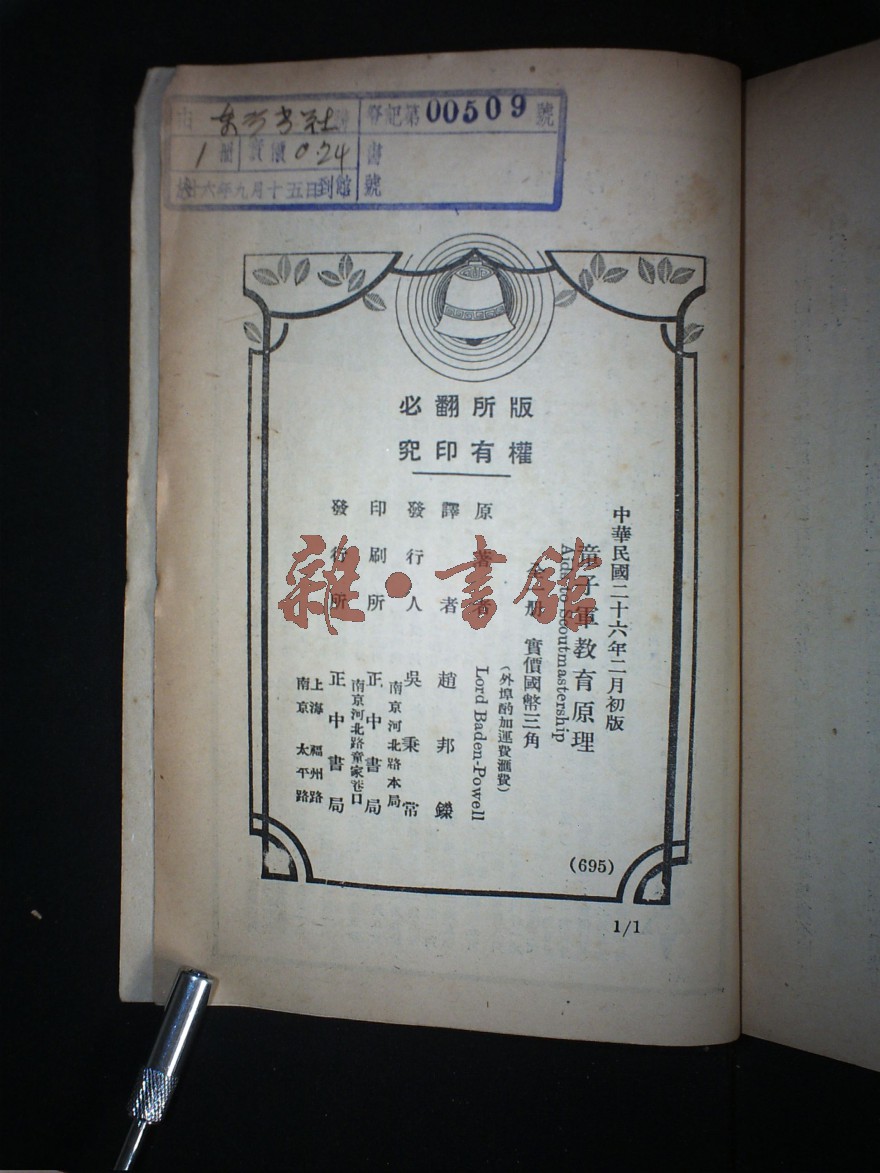 登記第00509號
1冊 實價0.24 書
廿六年九月十五日到館 號
版權
所有
翻印
必究
中華民國二十六年二月初版
童子軍教育原理
Aids to Scoutmastership
全一册 實價國幣三角
(外埠酌加運費滙費)
原著者 Lord Baden-Powell
譯者 趙邦鑅
發行人 吳秉常
南京河北路本局
印刷所 正中書局
南京河北路童家巷口
發行所 正中書局
上海福州路
南京太平路
(695)
1/1
雜·書館